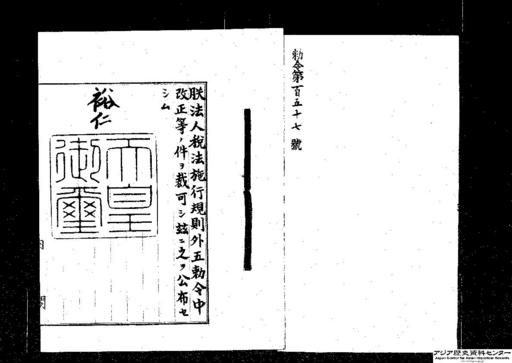 勅令第百五十七號
朕法人税法施行規則外五勅令中
改正等ノ件ヲ裁可シ玆ニ之ヲ公布セ
シム
裕仁
天皇
御璽
閣
アジア歴史資料センター
Japan Center for Asian Historical Records